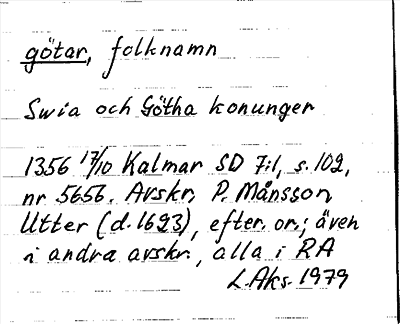 götar, folknamn
Swia och Götha konunger
1356 17/10 Kalmar SD 7:1, s. 102,
nr 5656. Avskr. P. Månsson
Utter (d. 1623), efter or.; även
i andra avskr., alla i RA
L.Aks. 1979